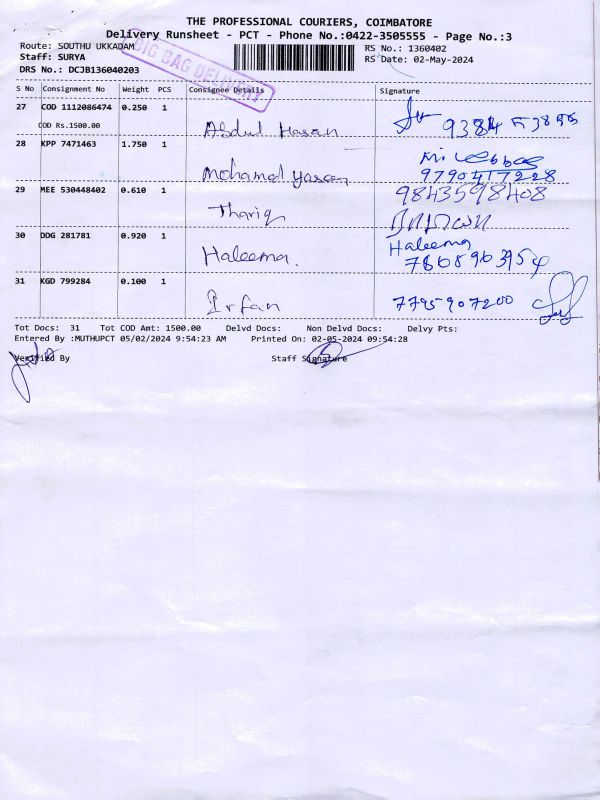 THE PROFESSIONAL COURIERS, COIMBATORE
Delivery Runsheet - PCT - Phone No.:0422-3505555 - Page No.:3
Route: SOUTHU UKKADAM
RS No.: 1360402
Staff: SURYA
RS Date: 02-May-2024
DRS No.: DCJB136040203
BIG BAG DELIVERY
S No Consignment No Weight PCS Consignee Details Signature
27 COD 1112086474 0.250 1
COD Rs.1500.00
Abdul Hasan
28 KPP 7471463 1.750 1
Mohamed Yasar
9790417228
29 MEE 530448402 0.610 1
9843598408
Thariq
30 DDG 281781 0.920 1
Haleema
Haleema.
31 KGD 799284 0.100 1
Irfan 7795907200
Tot Docs: 31 Tot COD Amt: 1500.00 Delvd Docs: Non Delvd Docs: Delvy Pts:
Entered By :MUTHUPCT 05/02/2024 9:54:23 AM Printed On: 02-05-2024 09:54:28
Verified By Staff Signature